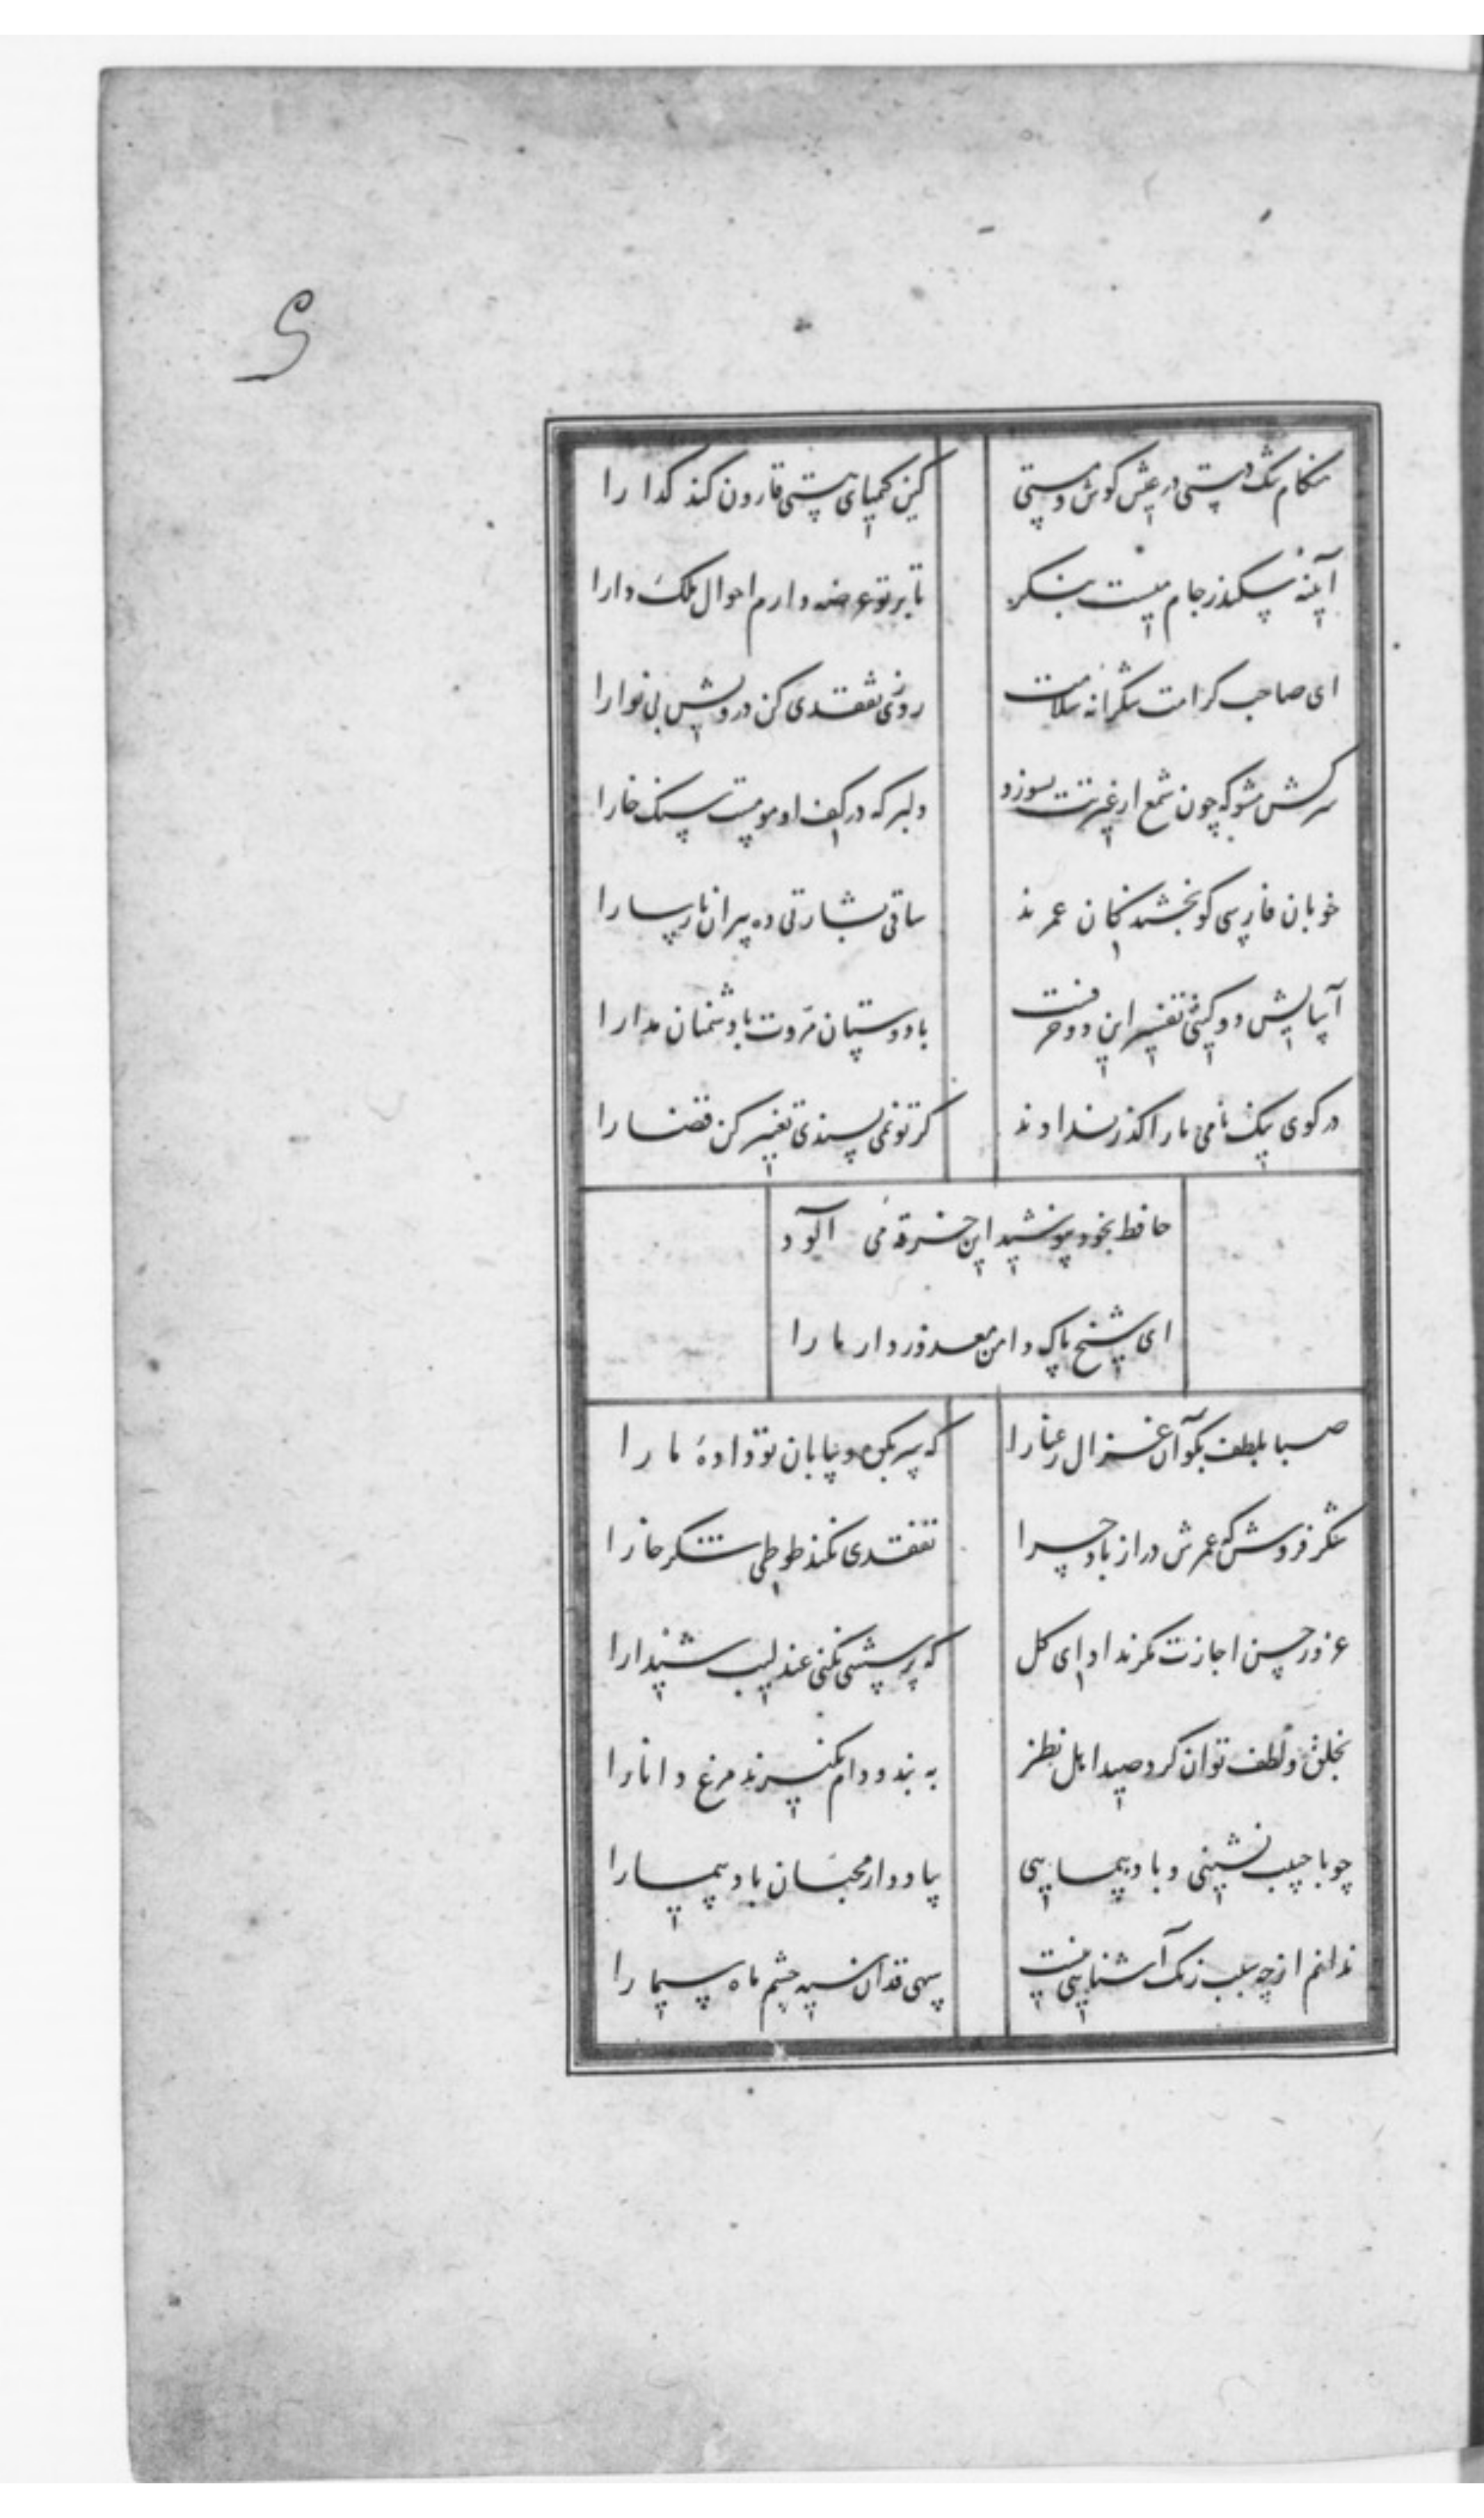 و
هنکام تنک دستی در عیش کوش و مستی
کین کیمیای هستی قارون کند کدا را
آیینه سکندر جام میست بنکر
تا بر تو عرضه دارم احوال ملک دارا
ای صاحب کرامت شکرانه سلامت
روزی تفقدی کن درویش بی نوا را
سرکش مشو که چون شمع از غیرتت بسوزد
دلبر که در کف او مومست سنک خارا
خوبان فارسی کو بخشندکان عمرند
ساقی بشارتی ده پیران نارسا را
آسایش دو کیتی تفسیر این دو حرفست
با دوستان مروت با دشمنان مدارا
در کوی نیک نامی ما را کذر ندادند
کر تو نمی پسندی تغییر کن قضا را
حافظ بخود نپوشید این خرقه می آلود
ای شیخ پاک دامن معذور دار ما را
صبا بلطف بکو آن غزال رعنا را
که سر بکوه و بیابان تو دادهٔ ما را
شکر فروش که عمرش دراز باد چرا
تفقدی نکند طوطی شکرخا را
غرور حسن اجازت مکر نداد ای کل
که پرسشی نکنی عندلیب شیدا را
بخلق و لطف توان کرد صید اهل نظر
به بند و دام نکیرند مرغ دانا را
چو با حبیب نشینی و باده پیمایی
بیاد دار محبان باد پیما را
ندانم از چه سبب رنک آشنایی نیست
سهی قدان سیه چشم ماه سیما را